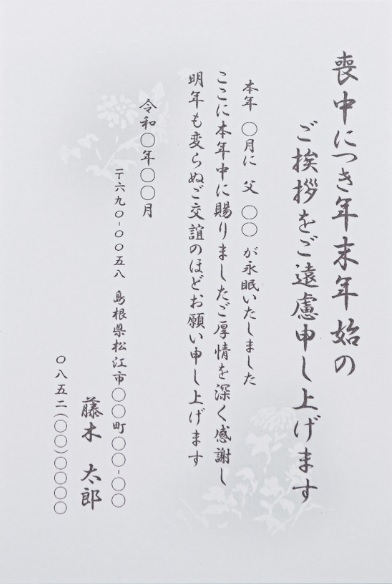 喪中につき年末年始の
ご挨拶をご遠慮申し上げます
本年 〇月に 父 〇〇 が永眠いたしました
ここに本年中に賜りましたご厚情を深く感謝し
明年も変らぬご交誼のほどお願い申し上げます
令和〇年〇〇月
〒六九〇-〇〇五八 島根県松江市〇〇町〇〇-〇〇
藤木 太郎
〇八五二(〇〇)〇〇〇〇